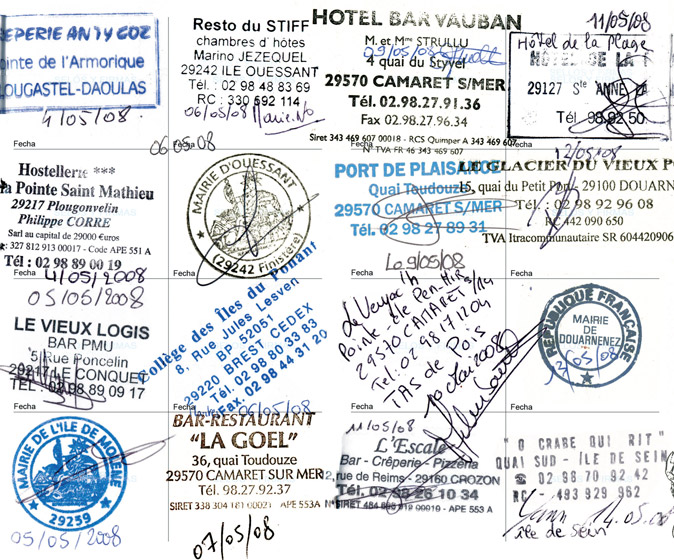 REPERIE AN TY GOZ
ointe de l'Armorique
LOUGASTEL-DAOULAS
4/05/08.
Fecha
Resto du STIFF
chambres d' hôtes
Marino JEZEQUEL
29242 ILE OUESSANT
Tél. : 02 98 48 83 69
RC : 330 592 114
06/05/08
06.05.08
Fecha
HOTEL BAR VAUBAN
M. et Mme STRULLU
09/05/08
4 quai du Styvel
29570 CAMARET S/MER
Tél. 02.98.27.91.36
Fax 02.98.27.96.34
Siret 343 469 607 00018 - RCS Quimper A 343 469 607
N° TVA FR 46 343 469 607
Fecha
11/05/08
Hôtel de la Plage
HÔTEL DE LA
29127 Ste ANNE LA
Tél 98 92 50
Fecha
12/05/08
Hostellerie ***
la Pointe Saint Mathieu
29217 Plougonvelin
Philippe CORRE
Sarl au capital de 29000 €uros
: 327 812 913 00017 - Code APE 551 A
Tél : 02 98 89 00 19
Fecha
4/05/2008
MAIRIE D'OUESSANT
(29242 Finistère)
PORT DE PLAISANCE
Quai Toudouze
29570 CAMARET S/MER
Tél. 02 98 27 89 31
Fecha
Le 9/05/08
LE GLACIER DU VIEUX P
15, quai du Petit Port - 29100 DOUARN
Tél. : 02 98 92 96 08
RC 442 090 650
TVA Itracommunautaire SR 604420906
Fecha
05/05/2008
LE VIEUX LOGIS
BAR PMU
5 Rue Poncelin
29217 LE CONQUET
TEL : 02 98 89 09 17
Fecha
Collège des Îles du Ponant
8, Rue Jules Lesven
BP 52051
29220 BREST CEDEX
Tél. 02 98 80 33 83
Fax. 02 98 44 31 20
Fecha
06/05/08
Pointe de Pen-Hir
29570 CAMARET
Tel: 02 98 17 12 04
TAS de Pois
10 mai 2008
Fecha
REPUBLIQUE FRANÇAISE
MAIRIE
DE
DOUARNENEZ
12/05/08
Fecha
MAIRIE DE L'ILE DE MOLENE
29259
05/05/2008
BAR-RESTAURANT
"LA GOEL"
36, quai Toudouze
29570 CAMARET SUR MER
Tél. 98.27.92.37
SIRET 338 304 181 00021 - APE 553 A
07/05/08
11/05/08
L'Escale
Bar - Crêperie - Pizzéria
12, rue de Reims - 29160 CROZON
Tél. 02 98 26 10 34
"O CRABE QUI RIT"
QUAI SUD - ÎLE DE SEIN
☎ 02 98 70 92 42
RC 493 929 962
Yann 14.05.08
île de Sein